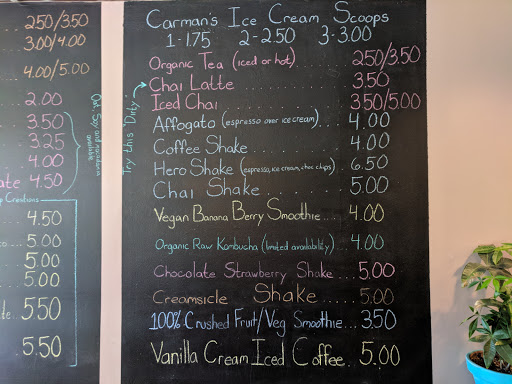 250/3.50
3.00/4.00
4.00/5.00
2.00
3.50
3.25
4.00
ate 4.50
Creations
4.50
5.00
5.00
5.00
te... 5.50
5.50
Carman's Ice Cream Scoops
1-1.75 2-2.50 3-3.00
Organic Tea (iced or hot) ... 250/3.50
Try this "Dirty"
Chai Latte ... 3.50
Iced Chai ... 350/5.00
Affogato (espresso over ice cream) . 4.00
Coffee Shake .... 4.00
Hero Shake (espresso, ice cream, choc chips) . 6.50
Chai Shake ....... 5.00
Vegan Banana Berry Smoothie ... 4.00
Organic Raw Kombucha (limited availability) . 4.00
Chocolate Strawberry Shake ... 5.00
Creamsicle Shake ..... 5.00
100% Crushed Fruit/Veg Smoothie... 3.50
Vanilla Cream Iced Coffee.. 5.00